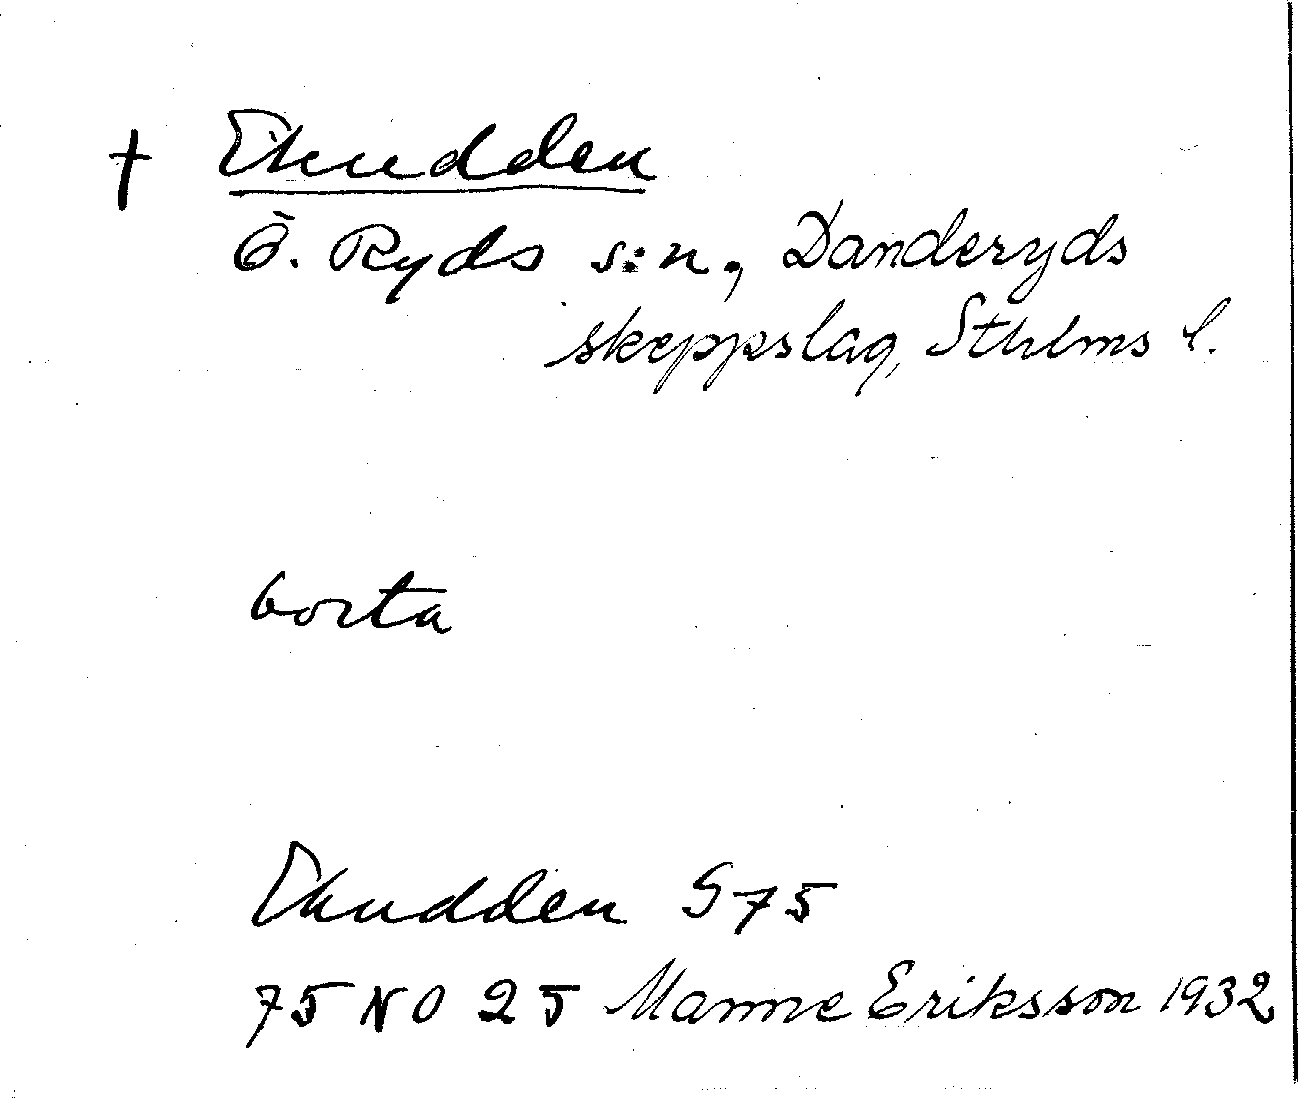 † Ekudden
Ö. Ryds s:n, Danderyds
skeppslag, Sthlms l.
borta
Ekudden S75
75 NO 25 Manne Eriksson 1932